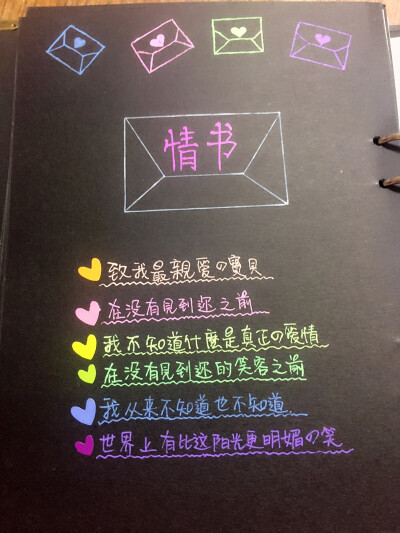 情书
致我最親爱の寶贝
在没有見到你之前
我不知道什麼是真正の爱情
在没有見到你的笑容之前
我从来不知道也不知道
世界上有比这阳光更明媚の笑